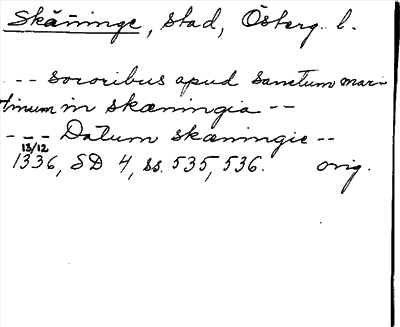 Skäninge, stad, Österg. l.
-- sororibus apud sanctum mar-
tinum in skæningia --
--- Datum skæningie --
13/12
1336, SD 4, ss. 535, 536. orig.